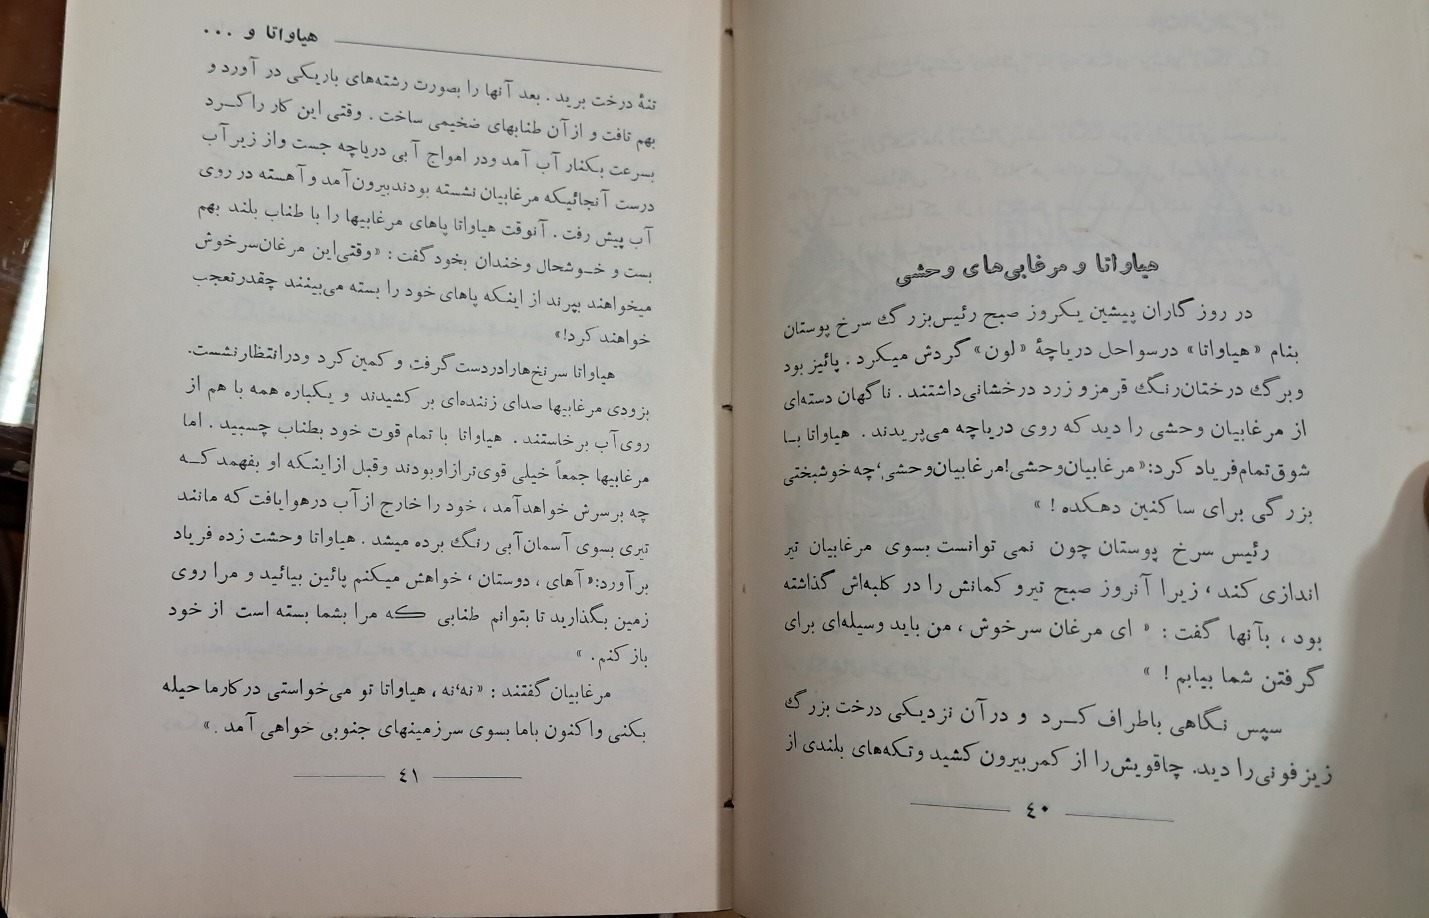 هیاواتا و مرغابی‌های وحشی
در روز گاران پیشین یکروز صبح رئیس‌بزرگ سرخ پوستان
بنام «هیاواتا» درسواحل دریاچهٔ «لون» گردش میکرد . پائیز بود
وبرگ درختان‌رنگ قرمز و زرد درخشانی‌داشتند . ناگهان دسته‌ای
از مرغابیان وحشی را دید که روی دریاچه می‌پریدند . هیاواتا بـا
شوق‌تمام‌فریاد کرد:«مرغابیان‌وحشی!مرغابیان‌وحشی،چه خوشبختی
بزرگی برای ساکنین دهکده ! »
رئیس سرخ پوستان چون نمی توانست بسوی مرغابیان تیر
اندازی کند ، زیرا آنروز صبح تیرو کمانش را در کلبه‌اش گذاشته
بود ، بآنها گفت : « ای مرغان سرخوش ، من باید وسیله‌ای برای
گرفتن شما بیابم ! »
سپس نگاهی باطراف کـرد و درآن نزدیکی درخت بزرگ
زیزفونی‌را دید. چاقویش‌را از کمربیرون کشید وتکه‌های بلندی از
۴۰
هیاواتا و ...
تنهٔ درخت برید . بعد آنها را بصورت رشته‌های باریکی در آورد و
بهم تافت و ازآن طنابهای ضخیمی ساخت . وقتی این کار راکـرد
بسرعت بکنار آب آمد ودر امواج آبی دریاچه جست واز زیرآب
درست آنجائیکه مرغابیان نشسته بودندبیرون‌آمد و آهسته در روی
آب پیش رفت . آنوقت هیاواتا پاهای مرغابیها را با طناب بلند بهم
بست و خـوشحال وخندان بخود گفت : «وقتی‌این مرغان‌سرخوش
میخواهند بپرند از اینکه پاهای خود را بسته می‌بینند چقدرتعجب
خواهند کرد!»
هیاواتا سرنخ‌هارادردست گرفت و کمین کرد ودرانتظارنشست.
بزودی مرغابیها صدای زننده‌ای بر کشیدند و یکباره همه با هم از
روی‌آب برخاستند . هیاواتا با تمام قوت خود بطناب چسبید . اما
مرغابیها جمعاً خیلی قوی‌ترازاوبودند وقبل ازاینکه او بفهمد کـه
چه برسرش خواهدآمد ، خود را خارج ازآب درهوایافت که مانند
تیری بسوی آسمان‌آبی رنگ برده میشد . هیاواتا وحشت زده فریاد
برآورد:«آهای ، دوستان ، خواهش میکنم پائین بیائید و مرا روی
زمین بگذارید تا بتوانم طنابی که مرا بشما بسته است از خود
باز کنم . »
مرغابیان گفتند : «نه،نه ، هیاواتا تو می‌خواستی در کارما حیله
بکنی واکنون باما بسوی سرزمینهای جنوبی خواهی آمد . »
۴۱